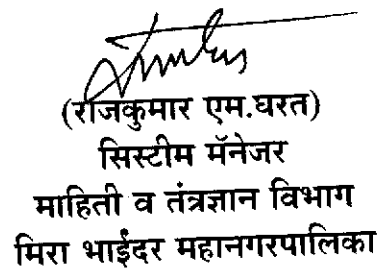 (राजकुमार एम.घरत)
सिस्टीम मॅनेजर
माहिती व तंत्रज्ञान विभाग
मिरा भाईंदर महानगरपालिका